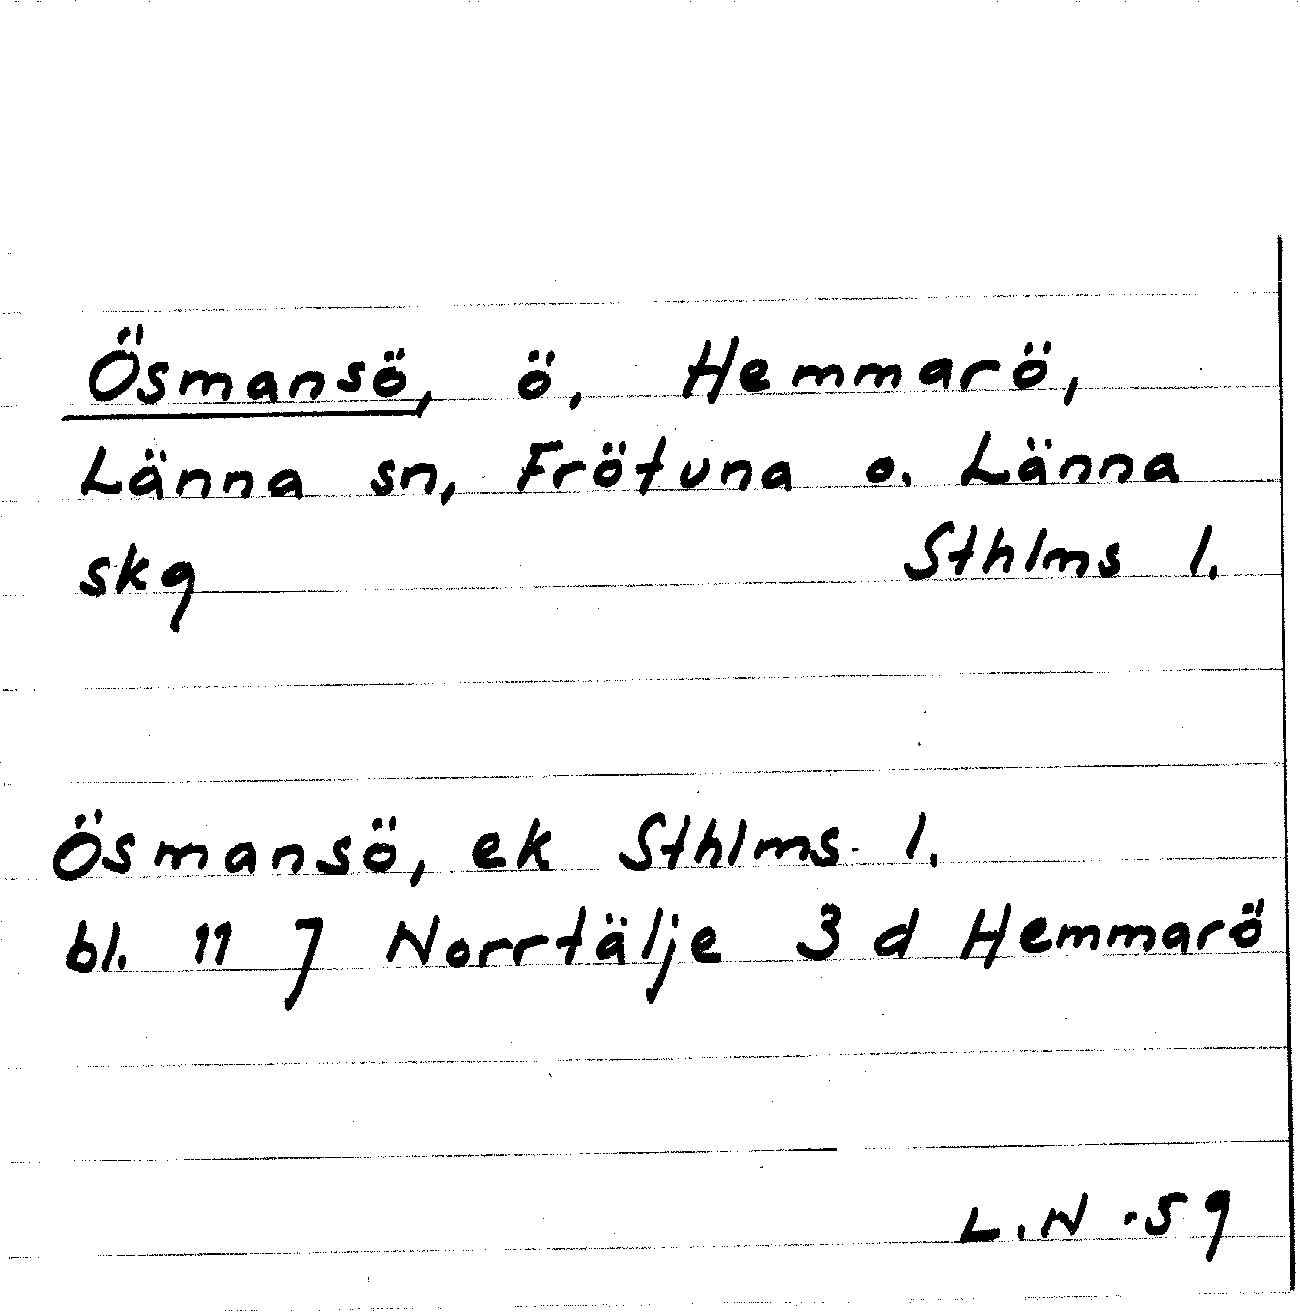 Ösmansö, ö, Hemmarö,
Länna sn, Frötuna o. Länna
skg Sthlms l.
Ösmansö, ek Sthlms l.
bl. 11 7 Norrtälje 3 d Hemmarö
L.N -59